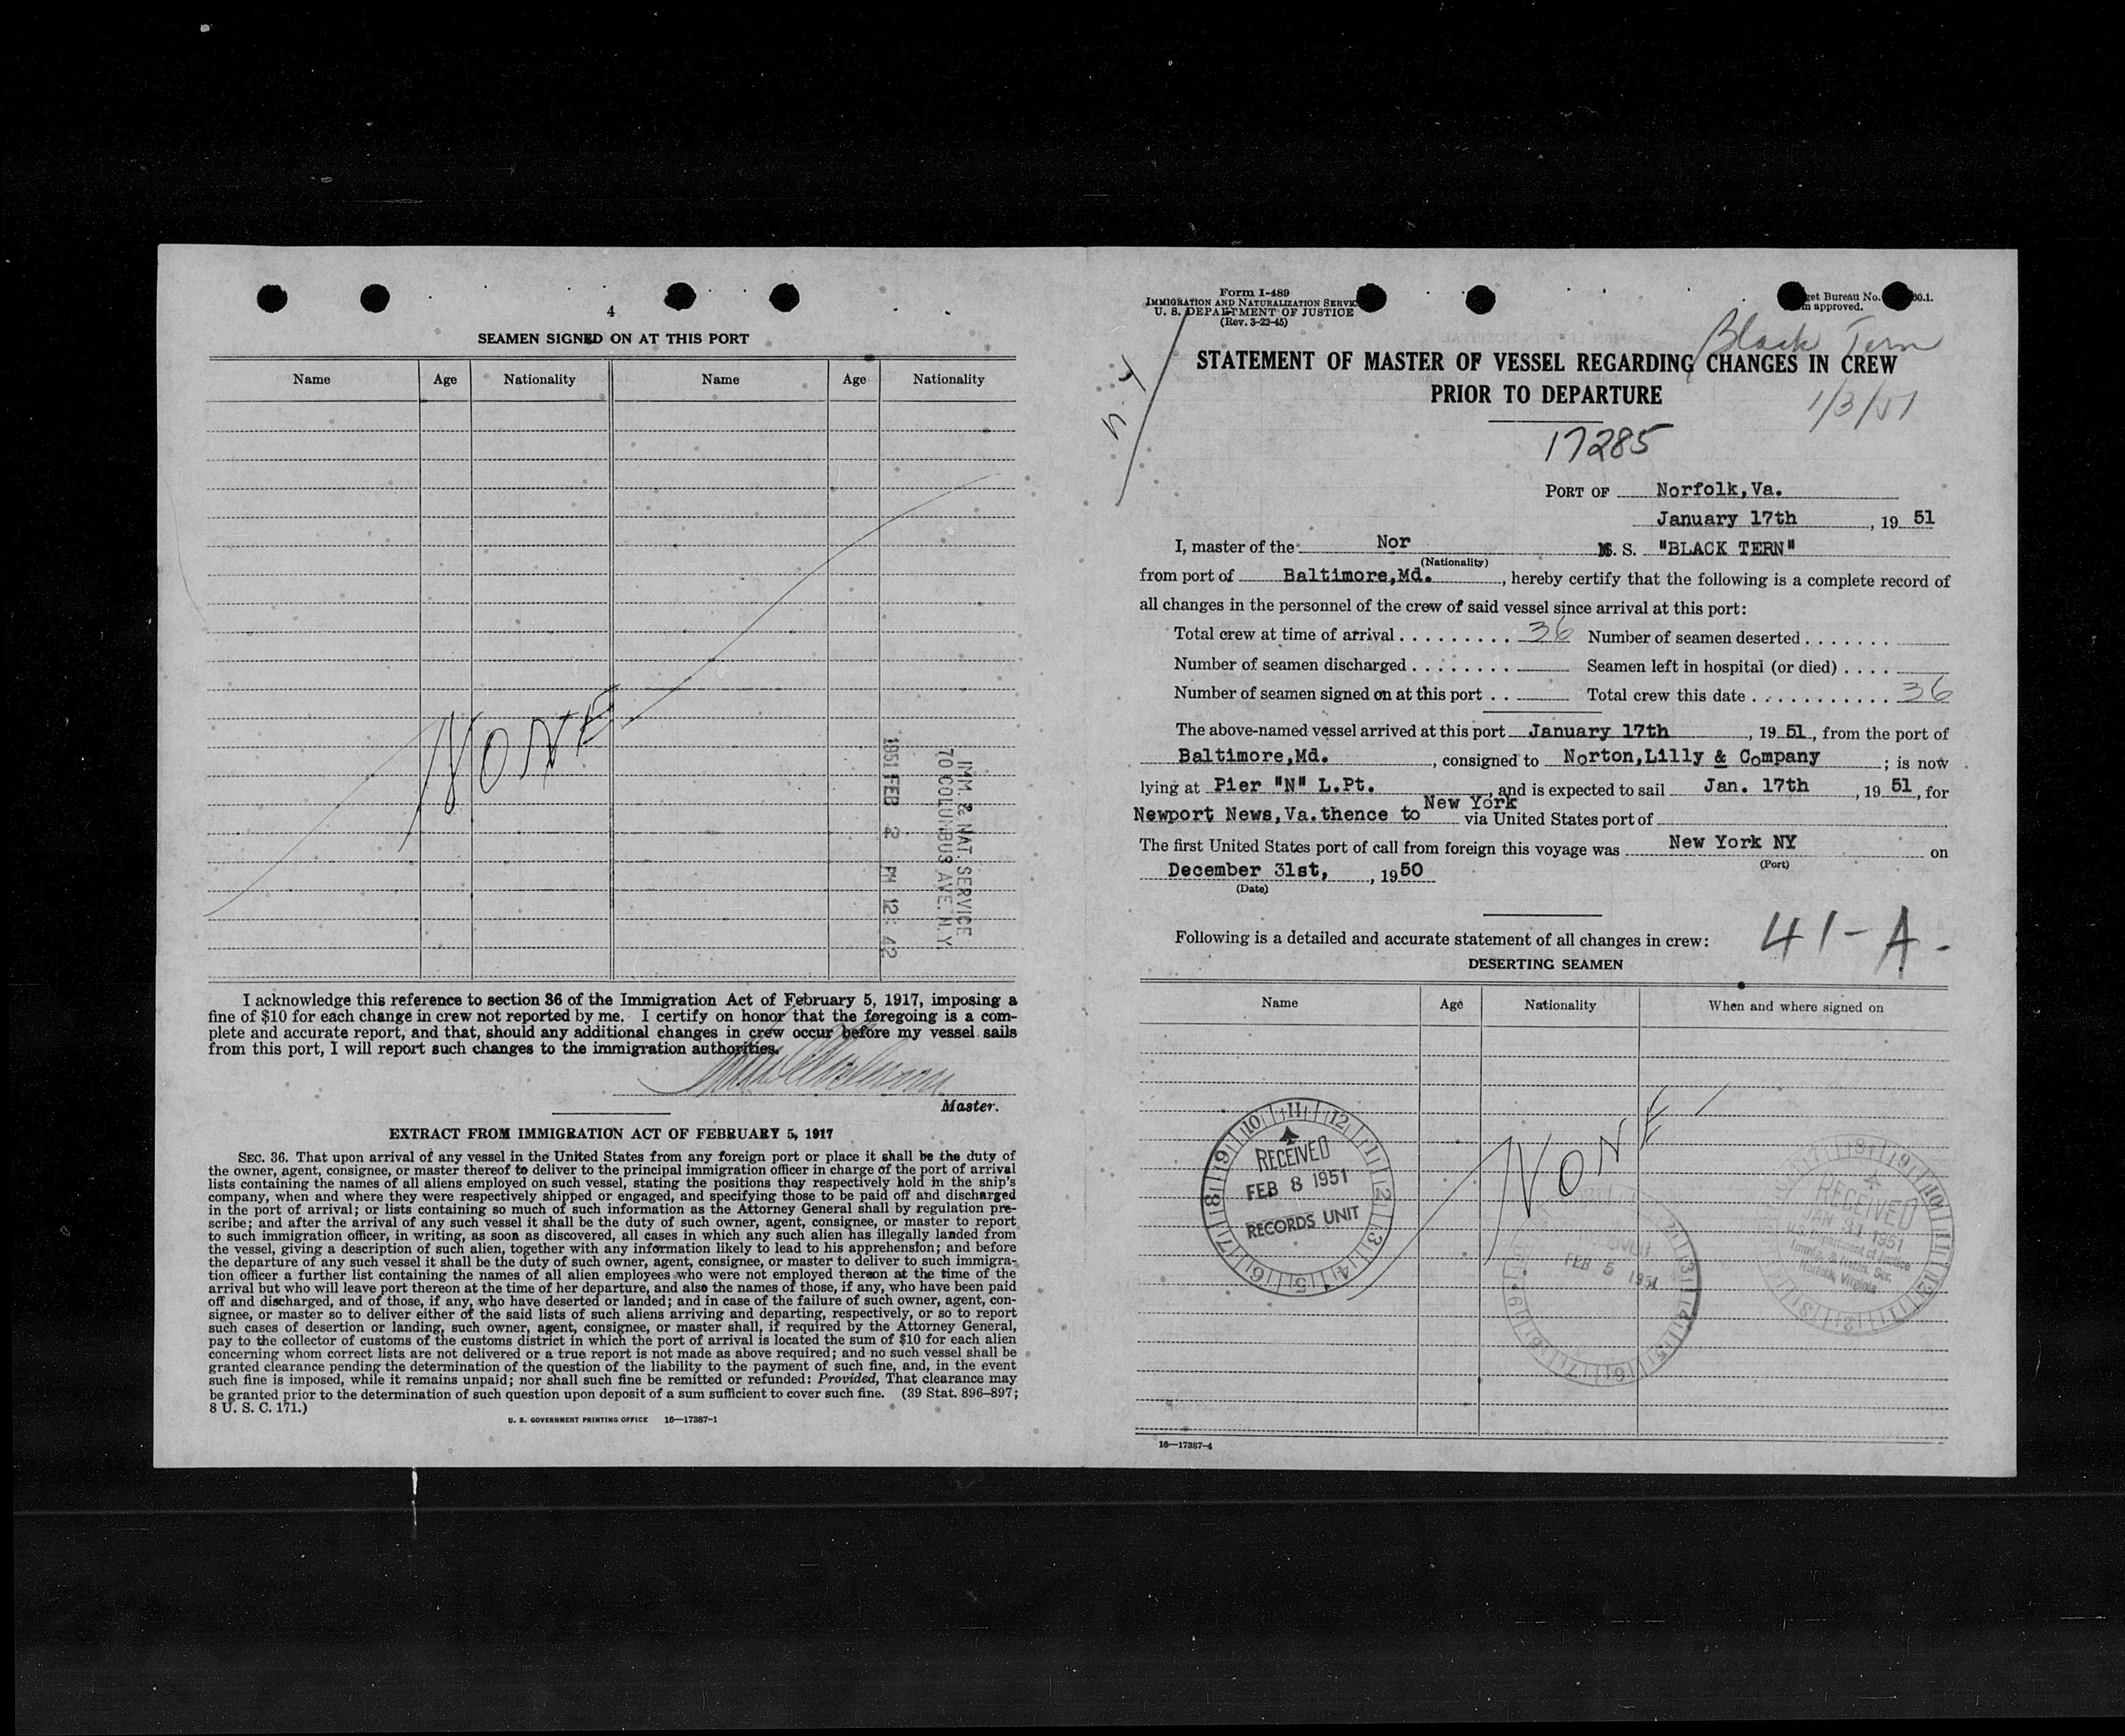 4
SEAMEN SIGNED ON AT THIS PORT
Name Age Nationality Name Age Nationality
NONE
1951 FEB 2 PM 12: 42
IMM. & NAT. SERVICE
70 COLUMBUS AVE. N.Y.
I acknowledge this reference to section 36 of the Immigration Act of February 5, 1917, imposing a
fine of $10 for each change in crew not reported by me. I certify on honor that the foregoing is a com-
plete and accurate report, and that, should any additional changes in crew occur before my vessel sails
from this port, I will report such changes to the immigration authorities.
Master.
EXTRACT FROM IMMIGRATION ACT OF FEBRUARY 5, 1917
SEC. 36. That upon arrival of any vessel in the United States from any foreign port or place it shall be the duty of
the owner, agent, consignee, or master thereof to deliver to the principal immigration officer in charge of the port of arrival
lists containing the names of all aliens employed on such vessel, stating the positions they respectively hold in the ship's
company, when and where they were respectively shipped or engaged, and specifying those to be paid off and discharged
in the port of arrival; or lists containing so much of such information as the Attorney General shall by regulation pre-
scribe; and after the arrival of any such vessel it shall be the duty of such owner, agent, consignee, or master to report
to such immigration officer, in writing, as soon as discovered, all cases in which any such alien has illegally landed from
the vessel, giving a description of such alien, together with any information likely to lead to his apprehension; and before
the departure of any such vessel it shall be the duty of such owner, agent, consignee, or master to deliver to such immigra-
tion officer a further list containing the names of all alien employees who were not employed thereon at the time of the
arrival but who will leave port thereon at the time of her departure, and also the names of those, if any, who have been paid
off and discharged, and of those, if any, who have deserted or landed; and in case of the failure of such owner, agent, con-
signee, or master so to deliver either of the said lists of such aliens arriving and departing, respectively, or so to report
such cases of desertion or landing, such owner, agent, consignee, or master shall, if required by the Attorney General,
pay to the collector of customs of the customs district in which the port of arrival is located the sum of $10 for each alien
concerning whom correct lists are not delivered or a true report is not made as above required; and no such vessel shall be
granted clearance pending the determination of the question of the liability to the payment of such fine, and, in the event
such fine is imposed, while it remains unpaid; nor shall such fine be remitted or refunded: Provided, That clearance may
be granted prior to the determination of such question upon deposit of a sum sufficient to cover such fine. (39 Stat. 896–897;
8 U. S. C. 171.)
U. S. GOVERNMENT PRINTING OFFICE 16—17387-1
Form I-489
IMMIGRATION AND NATURALIZATION SERVIC
U. S. DEPARTMENT OF JUSTICE
(Rev. 3-22-45)
get Bureau No. 0.1.
m approved.
N.Y
Black Tern
STATEMENT OF MASTER OF VESSEL REGARDING CHANGES IN CREW
PRIOR TO DEPARTURE
1/3/51
17285
PORT OF Norfolk,Va.
January 17th, 19 51
I, master of the Nor M. S. "BLACK TERN"
(Nationality)
from port of Baltimore,Md., hereby certify that the following is a complete record of
all changes in the personnel of the crew of said vessel since arrival at this port:
Total crew at time of arrival . . . . . . . . . 36 Number of seamen deserted . . . . . . .
Number of seamen discharged . . . . . . . . Seamen left in hospital (or died) . . . .
Number of seamen signed on at this port . . Total crew this date . . . . . . . . . . . 36
The above-named vessel arrived at this port January 17th, 19 51, from the port of
Baltimore,Md., consigned to Norton,Lilly & Company; is now
lying at Pier "N" L.Pt., and is expected to sail Jan. 17th, 19 51, for
Newport News,Va.thence to New York via United States port of
The first United States port of call from foreign this voyage was New York NY on
(Port)
December 31st, , 1950
(Date)
Following is a detailed and accurate statement of all changes in crew:
41-A-
DESERTING SEAMEN
Name Age Nationality When and where signed on
NONE
RECEIVED
FEB 8 1951
RECORDS UNIT
FEB 5 1951
RECEIVED
JAN 31 1951
U.S. Department of Justice
Immig. & Natzn. Ser.
Norfolk, Virginia
16—17387-4